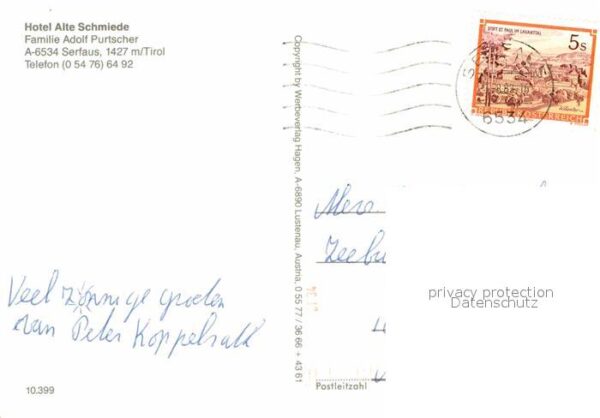 Hotel Alte Schmiede
Familie Adolf Purtscher
A-6534 Serfaus, 1427 m/Tirol
Telefon (0 54 76) 64 92
Copyright by Werbeverlag Hagen, A-6890 Lustenau, Austria, 0 55 77 / 36 66 + 43 61
STIFT ST. PAUL IM LAVANTTAL
5s
REPUBLIK ÖSTERREICH
6534
Veel zonnige groeten
van Peter
privacy protection
Datenschutz
Postleitzahl
10.399